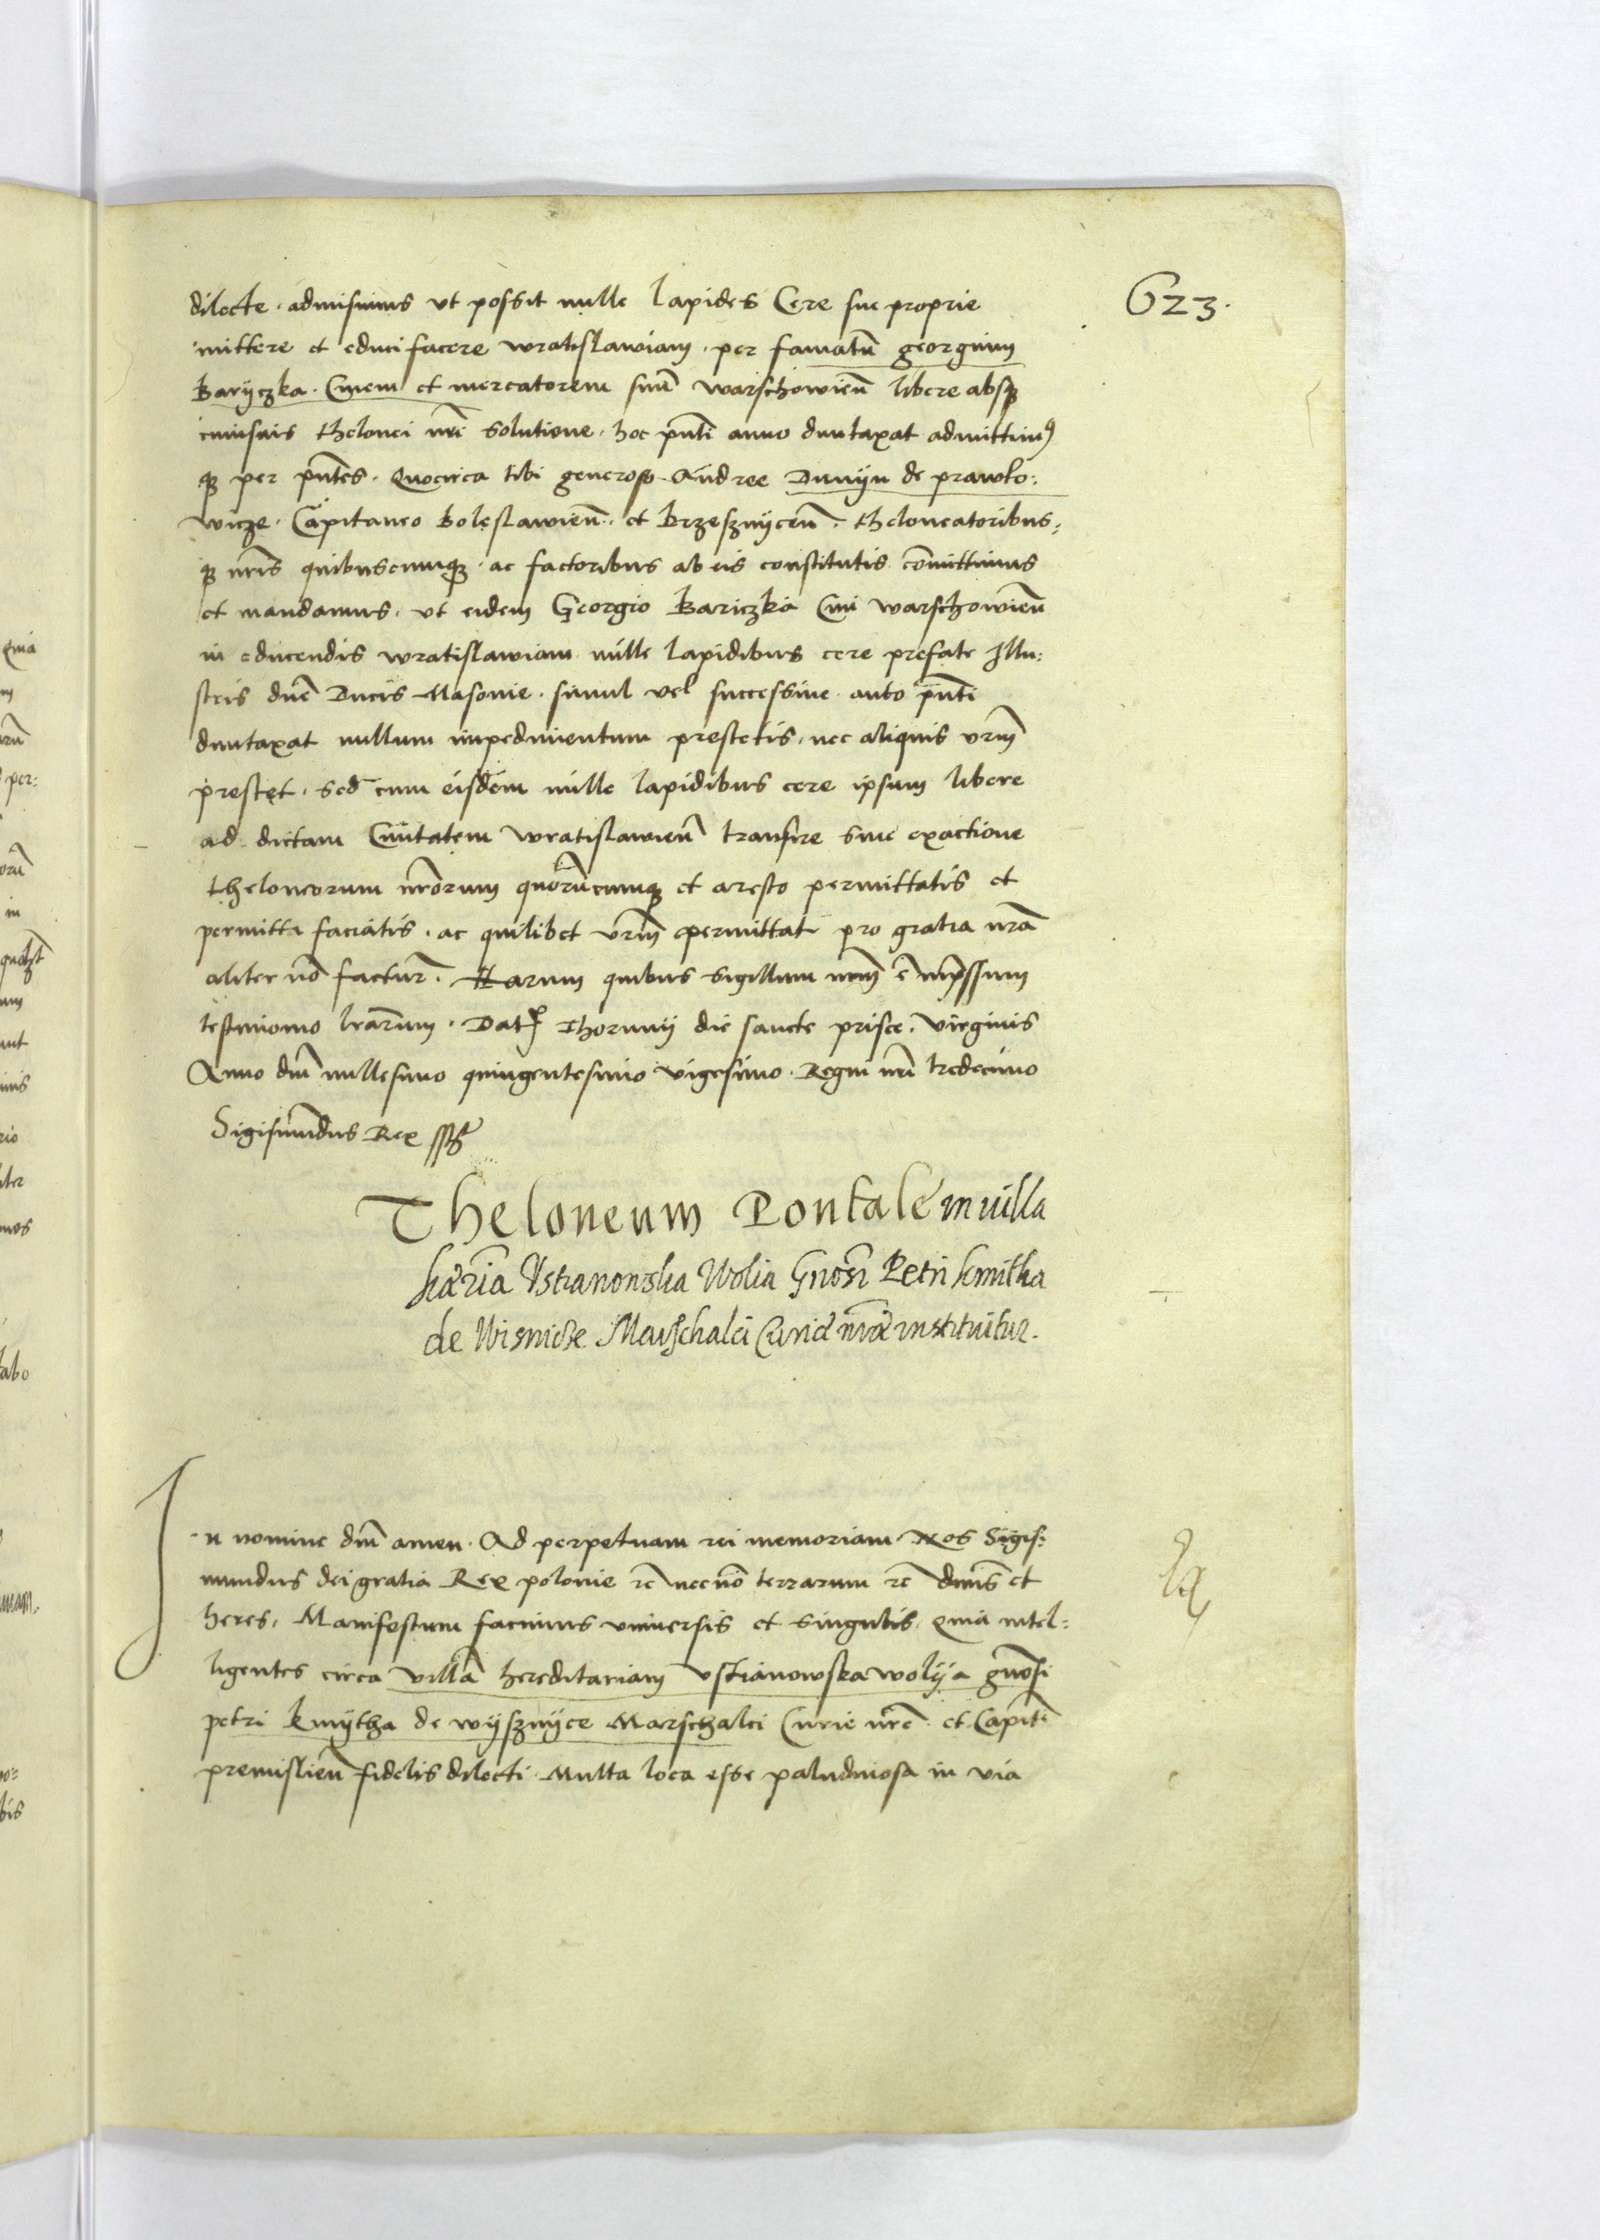 623.
dilecte · admisimus vt possit mille lapides Cere sue proprie
mittere et educi facere wratislawiam · per famatū georgium
Baryczka · Ciuem et mercatorem suū warschowieñ libere absq3
cuiusuis thelonei nr̄i solutione · hoc pn̄ti anno duntaxat admittim9
q3 per pn̄tes · Quocirca tibi generoso Andree Dunyn de prawko:
wicze · Capitaneo Boleslawieñ · et Brzesznyceñ · theloneatoribus:
q3 nr̄is quibuscumq3 · ac factoribus ab eis constitutis cōmittimus
et mandamus · vt eidem Georgio Bariczka Ciui warschowieñ
in educendis wratislawiam mille lapidibus cere prefate Illu:
stris dn̄e Ducis Masouie · simul vel successiue anno pn̄ti
duntaxat nullum impedimentum prestetis · nec aliquis vr̄m
prestet · sed cum eisdem mille lapidibus cere ipsum libere
ad dictam Ciuitatem wratislawieñ transire sine exactione
theloneorum nr̄orum quorūcumq3 et aresto permittatis et
permitti faciatis · ac quilibet vr̄m permittat pro gratia nr̄a
aliter nō factur̄ · Harum quibus sigillum nr̄m ē imp̄ssum
testimonio lr̄arum · Dat̄ Thorunij die sancte prisce · virginis
Anno dn̄i millesimo quingentesimo vigesimo · Regni nr̄i tredecimo
Sigismūdus Rex sst
Theloneum Pontale in uilla
hær̄ia Vstianonska Wolia Gnōsi Petri Kmitha
de Wisnicze Marschalci Curiæ nr̄æ instituitur.
In nomine dn̄i amen · Ad perpetuam rei memoriam · Nos Sigis:
mundus dei gratia Rex polonie rē necnō terrarum rē dn̄us et
heres · Manifestum facimus vniuersis et singulis · Quia intel:
ligentes circa villā hereditariam vstianowska wolya gn̄osi
petri kmytha de wysznyce Marschalci Curie nr̄e · et Capit̄i
premislieñ fidelis dilecti · Multa loca esse paludinosa in via